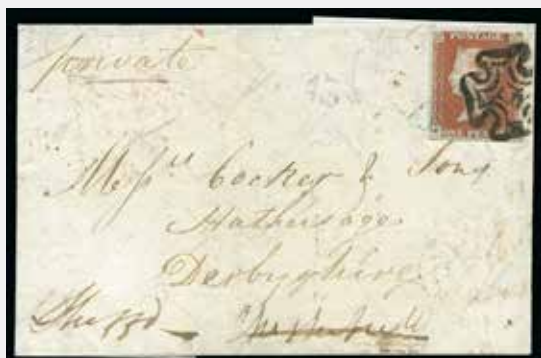 POSTAGE
private
Messrs Cocker & Sons
Hathersage
Derbyshire
Sheffd
ONE PE